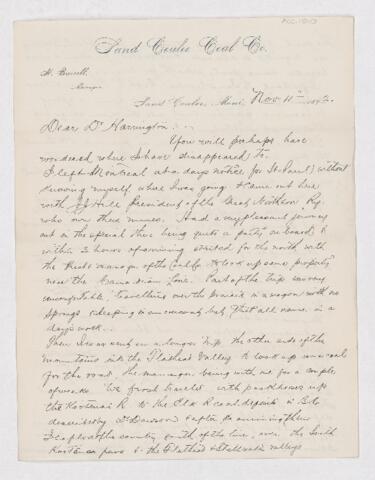 Sand Coulee Coal Co.
H. Burrell,
Manager
Sand Coulee, Mont., Nov 11th 189
Dear Dr Harrington:—
You will perhaps have
wondered where I have disappeared to.
I left Montreal at a days notice for St. Paul without
knowing myself where I was going & came out here
with JJ Hill President of the Great Northern Ry.
who own these mines. Had a very pleasant journey
out on the special there being quite a party on board &
within 2 hours of arriving started for the north with
the manager of the Coal Co to look up some property
near the Canadian line. Part of the trip was very
uncomfortable, travelling over the prairie in a wagon with no
springs & sleeping in an but that all came in a
days work.
Then I was sent on a longer trip the other side of the
mountains into the Flathead Valley to look up some coal
for the road, the manager being with me for a couple
of weeks. We first travelled with packhorses up
the Kootenai R to the Elk R coal deposits in B.C.
described by Dr Dawson & after examining them
I explored the country south of the line, over the South
Kootenai pass & the Flathead & Stillwater valleys